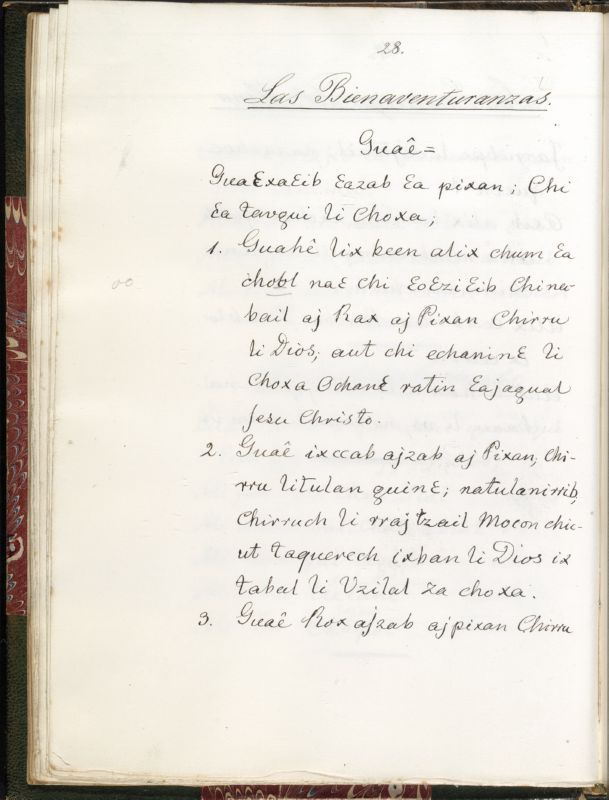 28.
Las Bienaventuranzas.
Guaê=
GuaƐxaƐib Ɛazab Ɛa pixan; Chi
Ɛa tavqui li Choxa;
1. Guahê lix been alix chum Ɛa
chobl naƐ chi ƐoƐziƐib China-
bail aj Rax aj Pixan Chirru
li Dios; aut chi echaninƐ li
Choxa OchanƐ ratin Ɛajagual
Jesu Christo.
2. Guaê ixccab ajzab aj Pixan, Chi-
rru litulan quinƐ; natulanirrib,
Chirruch li rraj tzail Mocon chic-
ut taquerech ixban li Dios ix
tabal li Uzilal za choxa.
3. Guaê Rox ajzab aj pixan Chirru